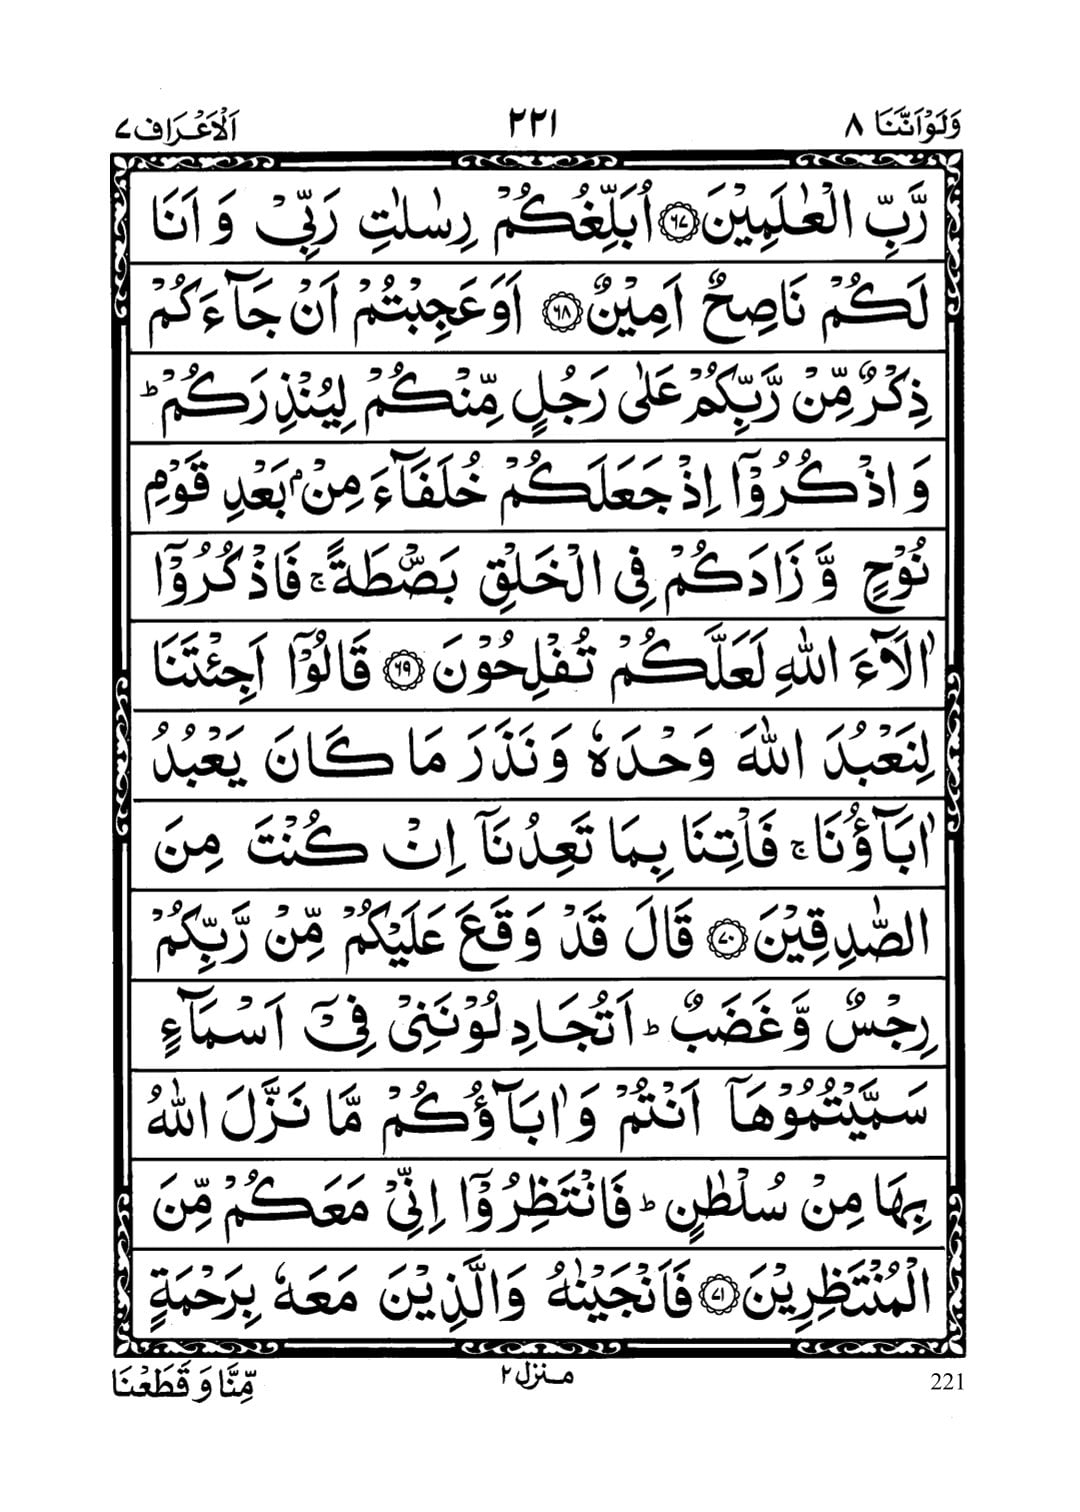 وَلَوْاَنَّنَا ۸
۲۲۱
اَلْاَعْرَاف ۷
رَّبِّ الْعٰلَمِيْنَ ﴿۶۷﴾ اُبَلِّغُكُمْ رِسٰلٰتِ رَبِّيْ وَ اَنَا
لَكُمْ نَاصِحٌ اَمِيْنٌ ﴿۶۸﴾ اَوَعَجِبْتُمْ اَنْ جَآءَكُمْ
ذِكْرٌ مِّنْ رَّبِّكُمْ عَلٰى رَجُلٍ مِّنْكُمْ لِيُنْذِرَكُمْ ؕ
وَ اذْكُرُوْۤا اِذْ جَعَلَكُمْ خُلَفَآءَ مِنْۢ بَعْدِ قَوْمِ
نُوْحٍ وَّ زَادَكُمْ فِي الْخَلْقِ بَصْۜطَةً ۚ فَاذْكُرُوْۤا
اٰلَآءَ اللّٰهِ لَعَلَّكُمْ تُفْلِحُوْنَ ﴿۶۹﴾ قَالُوْۤا اَجِئْتَنَا
لِنَعْبُدَ اللّٰهَ وَحْدَهٗ وَ نَذَرَ مَا كَانَ يَعْبُدُ
اٰبَآؤُنَا ۚ فَاْتِنَا بِمَا تَعِدُنَاۤ اِنْ كُنْتَ مِنَ
الصّٰدِقِيْنَ ﴿۷۰﴾ قَالَ قَدْ وَقَعَ عَلَيْكُمْ مِّنْ رَّبِّكُمْ
رِجْسٌ وَّ غَضَبٌ ؕ اَتُجَادِلُوْنَنِيْ فِيْۤ اَسْمَآءٍ
سَمَّيْتُمُوْهَاۤ اَنْتُمْ وَ اٰبَآؤُكُمْ مَّا نَزَّلَ اللّٰهُ
بِهَا مِنْ سُلْطٰنٍ ؕ فَانْتَظِرُوْۤا اِنِّيْ مَعَكُمْ مِّنَ
الْمُنْتَظِرِيْنَ ﴿۷۱﴾ فَاَنْجَيْنٰهُ وَالَّذِيْنَ مَعَهٗ بِرَحْمَةٍ
221
منزل ۲
مِّنَّا وَ قَطَعْنَا